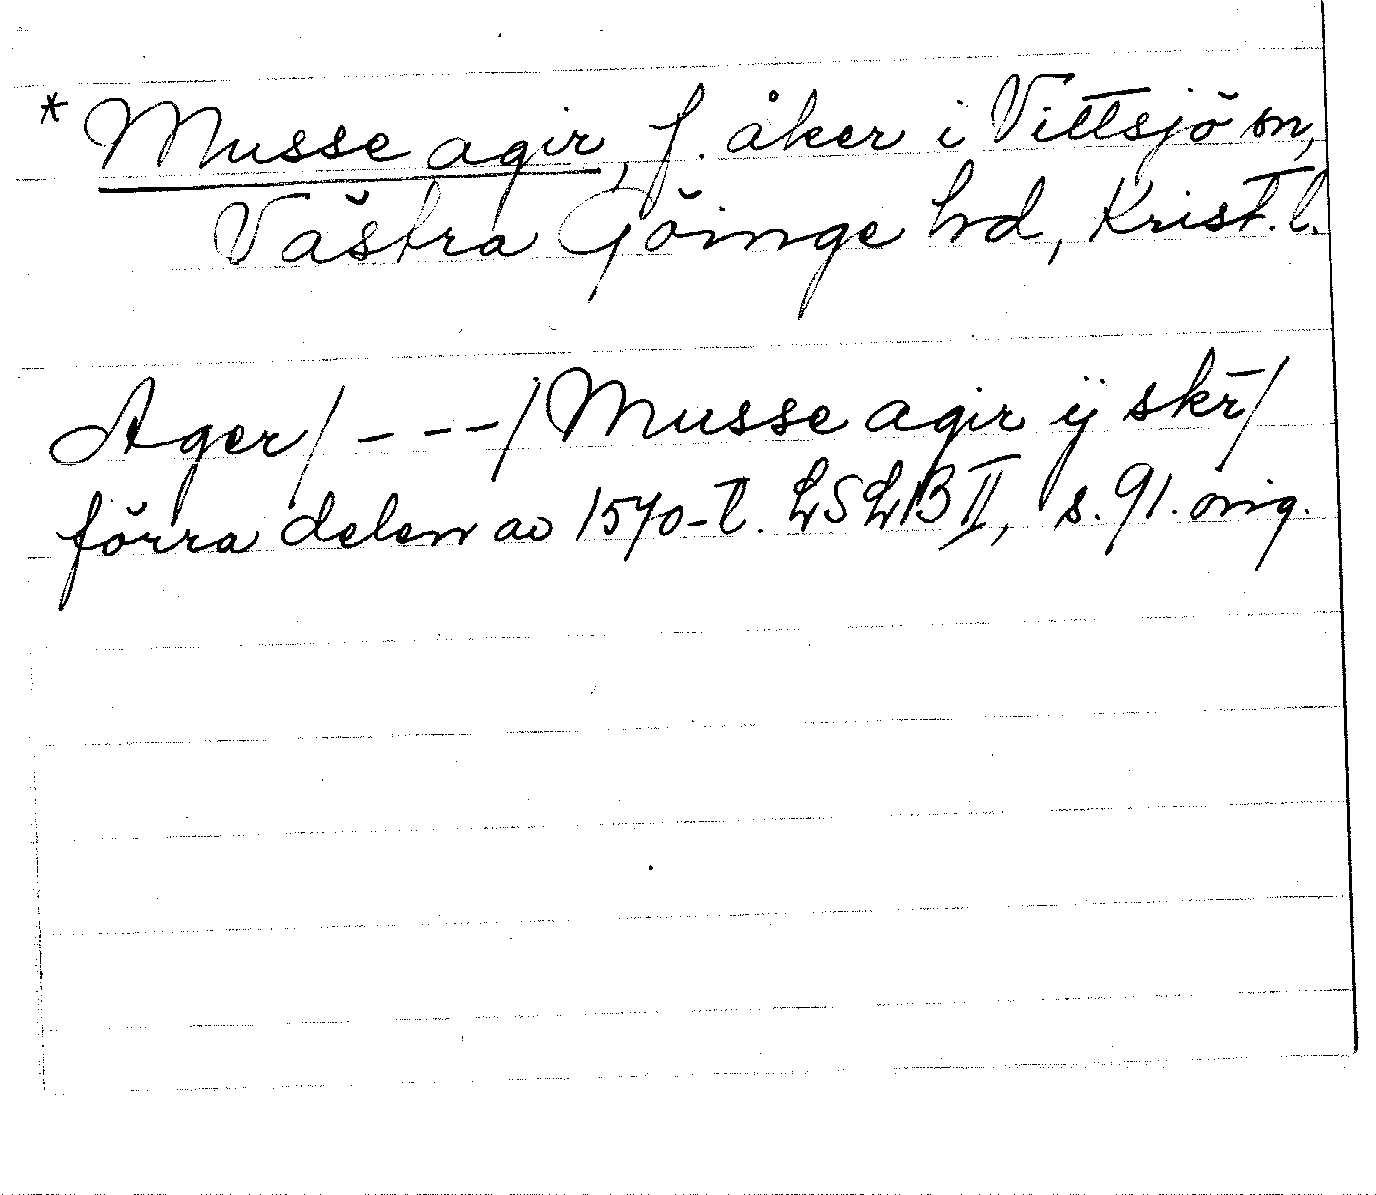 * Musse agir, f. åker i Vittsjö sn,
Västra Göinge hd, Krist. l.
Ager/ - - - / Musse agir ij skr̄/
förra delen av 1570-t. LSLB II, s. 91. orig.